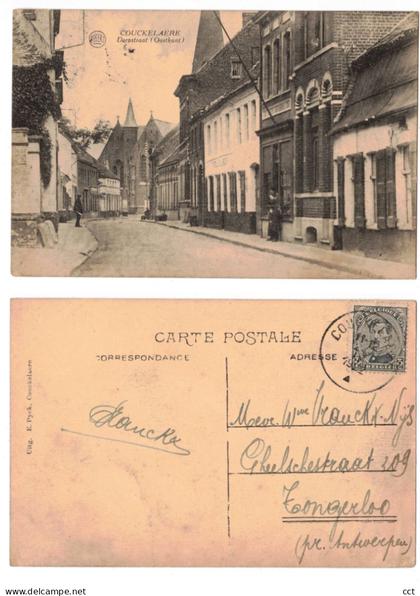 COUCKELAERE
Dorpstraat (Oostkant)
CARTE POSTALE
CORRESPONDANCE
ADRESSE
Uitg. E. Pyck, Couckelaere
Mevr. Wwe Vranckx-Nijs
Gheelschestraat 209
Tongerloo
(pr. Antwerpen)
delcampe.net
cct